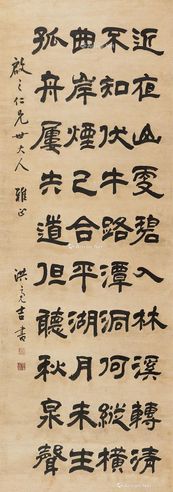 近夜山更碧入林溪轉清
不知伏牛路潭洞何縱橫
曲岸煙已合平湖月未生
孤舟屢失道但聽秋泉聲
啟之仁兄世大人 雅正
洪元吉書